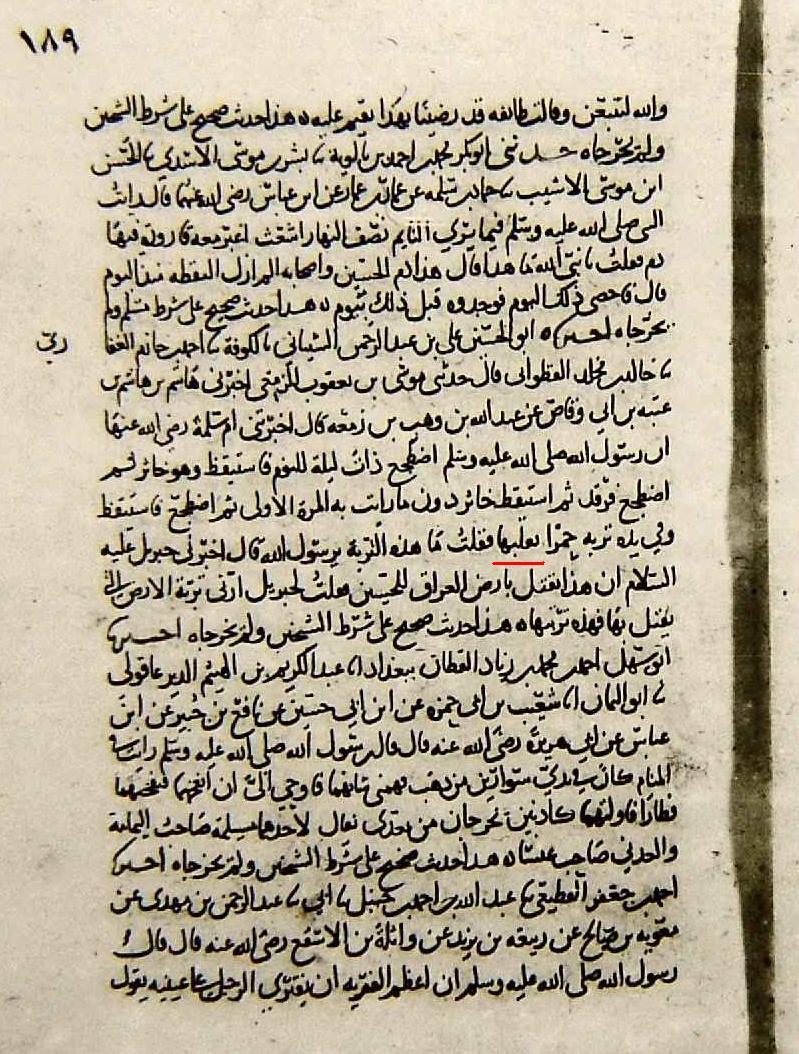 ١٨٩
والله لنتبعن وقالت طائفة قد رضينا بهذا نقيم عليه ه هذا حديث صحيح على شرط الشيخين
ولم يخرجاه حدثني ابو بكر محمد بن احمد بن بالويه ثنا بشر بن موسى الاسدي ثنا الحسن
ابن موسى الاشيب ثنا حماد بن سلمه عن عمار بن عمار عن ابن عباس رضى الله عنهما قال رايت
النبى صلى الله عليه وسلم فيما يرى النايم نصف النهار اشعث اغبر معه قارورة فيها
دم فقلت يا نبى الله ما هذا قال هذا دم الحسين واصحابه لم ازل التقطه منذ اليوم
قال فاحصى ذلك اليوم فوجدوه قتل قبل ذلك بيوم ه هذا حديث صحيح على شرط مسلم ولم
يخرجاه اخبرناه ابو الحسين على بن عبد الرحمن الشيباني بالكوفة ثنا احمد بن حازم الغفا
رى
ثنا خالد بن مخلد القطوانى قال حدثنى موسى بن يعقوب الزمعى اخبرنى هاشم بن هاشم بن
عتبه بن ابي وقاص عن عبد الله بن وهب بن زمعه قال اخبرتنى ام سلمة رضى الله عنها
ان رسول الله صلى الله عليه وسلم اضطجع ذات ليلة للنوم فاستيقظ وهو خاثر ثم
اضطجع فرقد ثم استيقظ خاثر دون ما رايت به المرة الاولى ثم اضطجع فاستيقظ
وفي يده تربه حمرا يقلبها فقلت ما هذه التربة يرسول الله قال اخبرنى جبريل عليه
السلام ان هذا يقتل بارض العراق للحسين فقلت لجبريل ارنى تربة الارض التى
يقتل بها فهذه تربتها ه هذا حديث صحيح على شرط الشيخين ولم يخرجاه اخبرنا
ابو سهل احمد بن محمد بن زياد القطان ببغداد انا عبد الكريم بن الهيثم الديرعاقولى
ثنا ابو اليمان انا شعيب بن ابى حمزه عن ابن ابي حسين عن نافع بن جبير عن ابن
عباس عن ابي هريرة رضى الله عنه قال قال رسول الله صلى الله عليه وسلم رايت في
المنام كان في يدى سوارين من ذهب فهمنى شانهما فاوحي الى ان انفخهما فنفختهما
فطارا فاولتهما كاذبين يخرجان من بعدى يقال لاحدهما مسيلمة صاحب اليمامة
والعنسى صاحب صنعا ه هذا حديث صحيح على شرط الشيخين ولم يخرجاه اخبرنا
احمد بن جعفر القطيعى ثنا عبد الله بن احمد بن حنبل ثنا ابي ثنا عبد الرحمن بن مهدى عن
معويه بن صالح عن ربيعه بن يزيد عن واثلة بن الاسقع رضى الله عنه قال قال
رسول الله صلى الله عليه وسلم ان اعظم الفريه ان يفترى الرجل على عينيه يقول